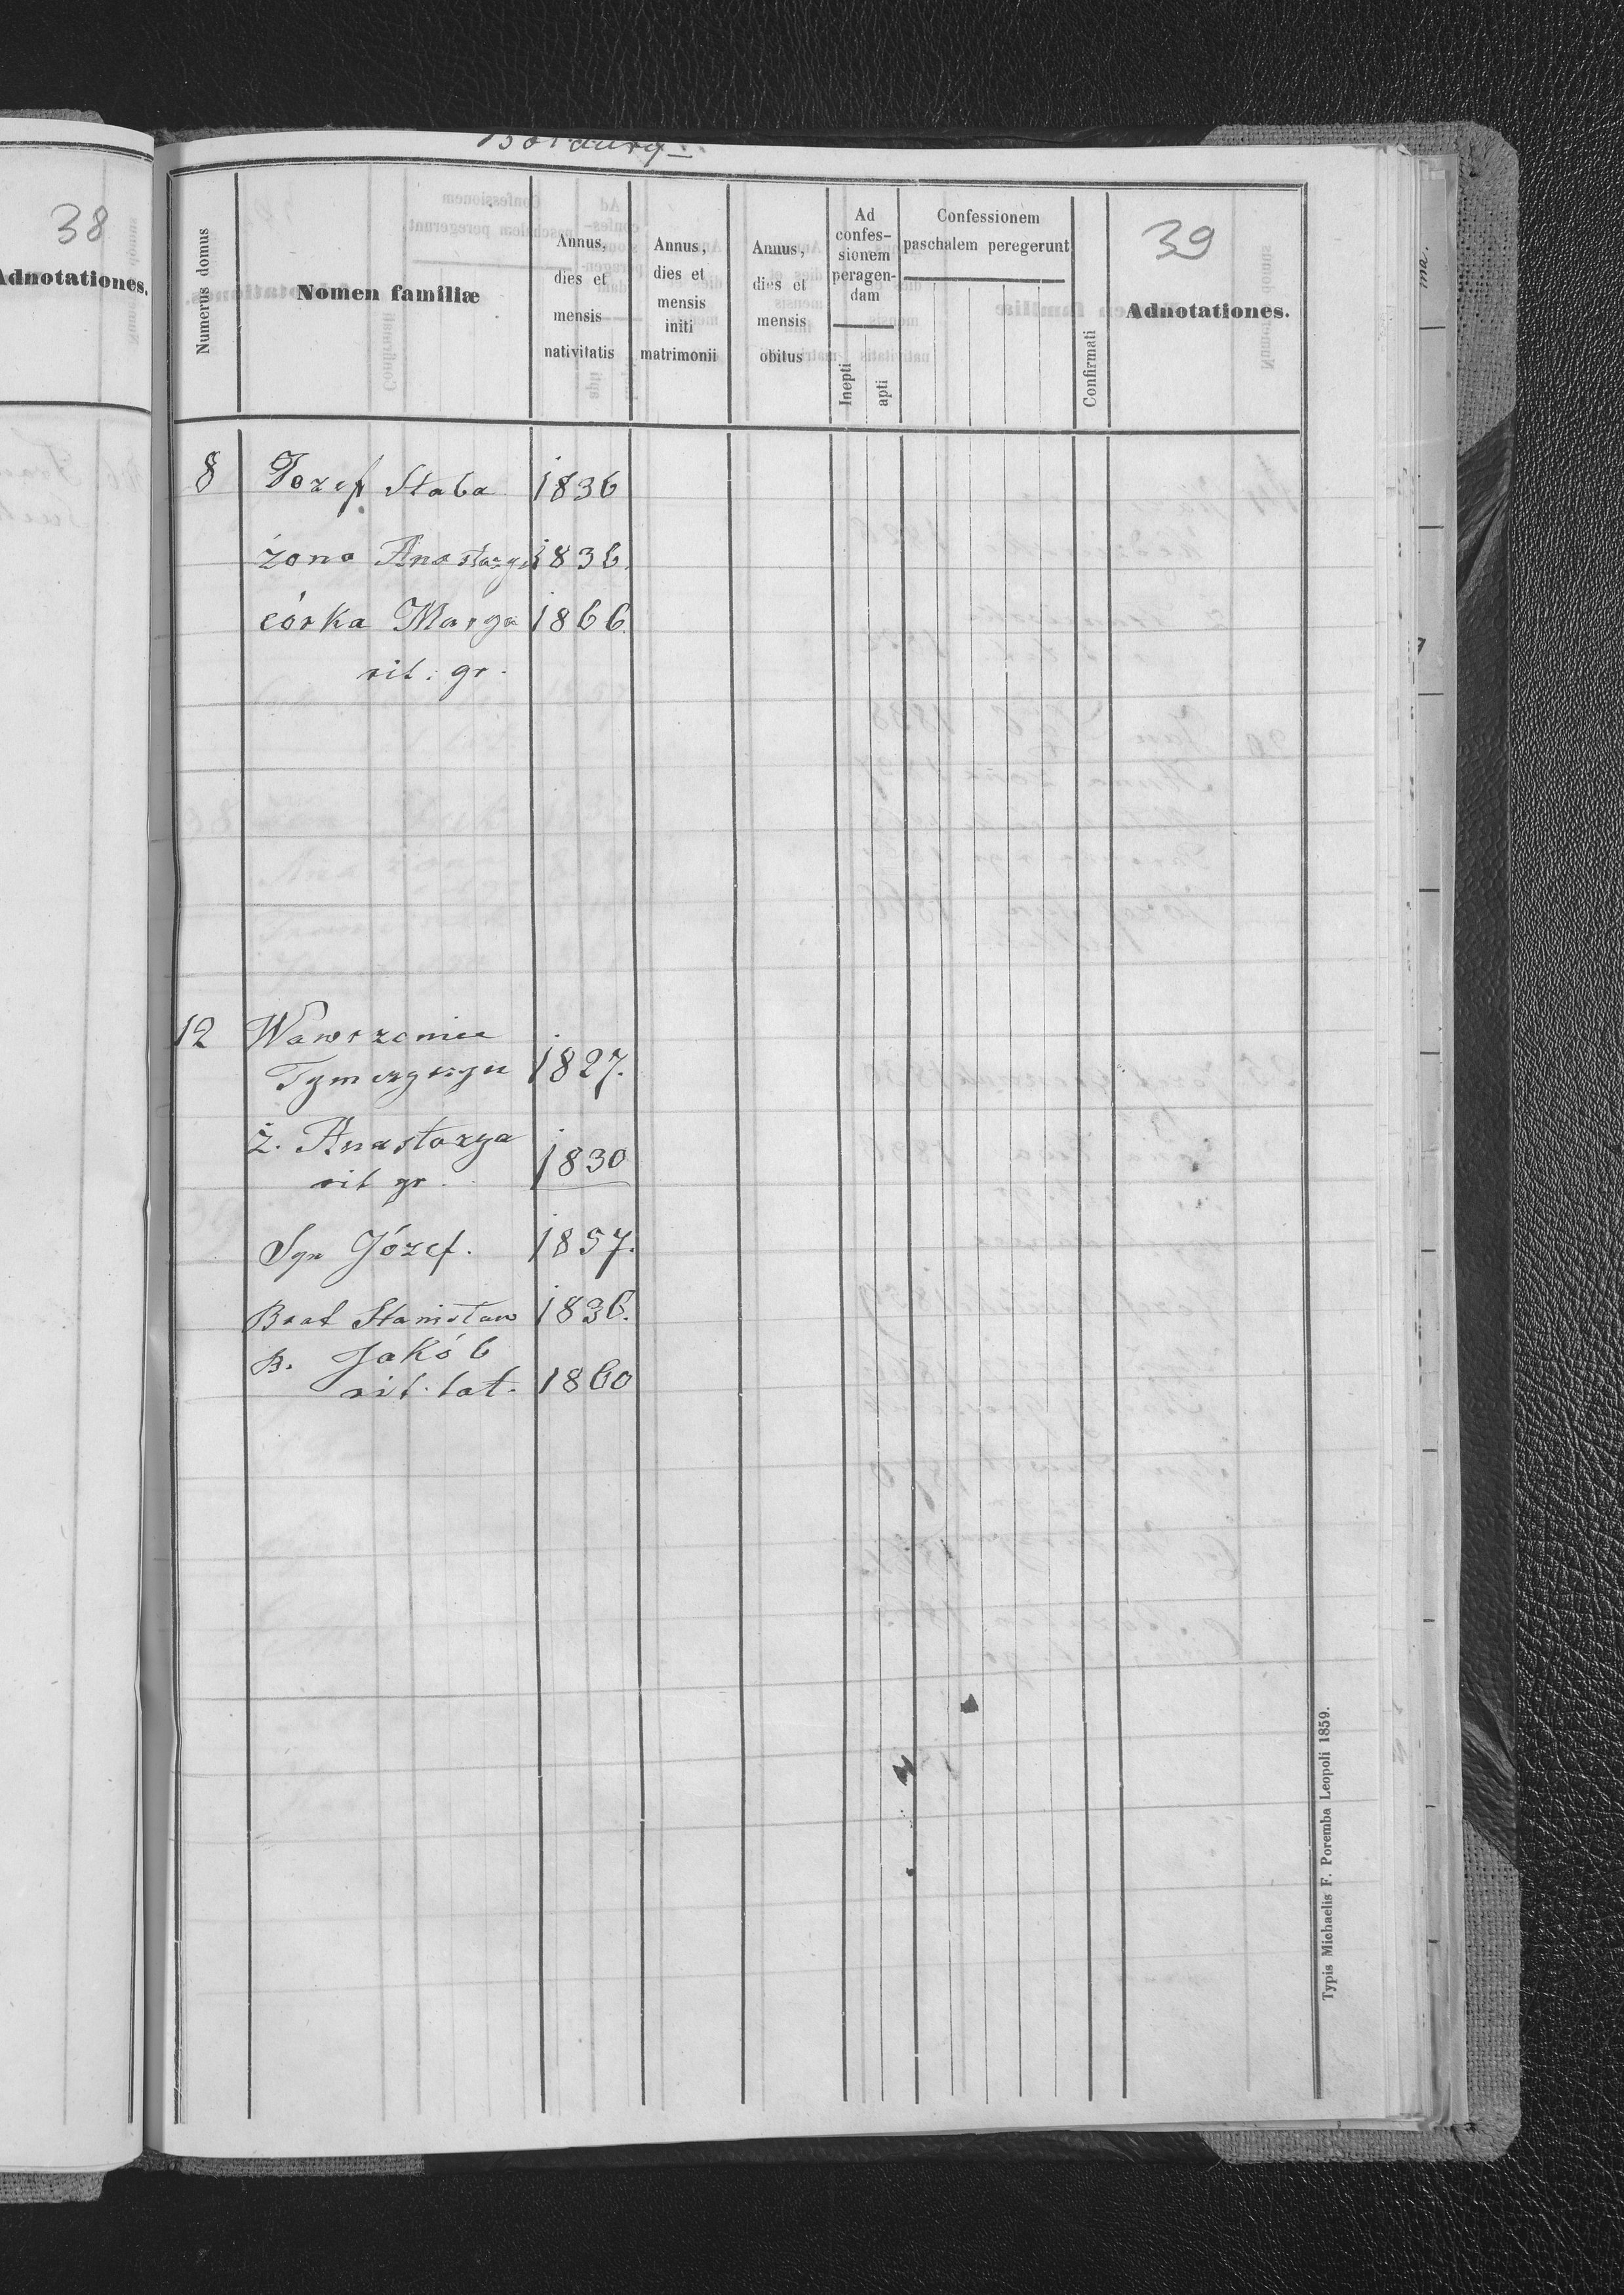 38
Adnotationes.
Numerus domus
Nomen familiæ
Annus,
dies et
mensis
nativitatis
Annus,
dies et
mensis
initi
matrimonii
Annus,
dies et
mensis
obitus
Ad
confes-
sionem
peragen-
dam
Inepti
apti
Confessionem
paschalem peregerunt
Confirmati
39
Adnotationes.
8 Jozef Słaba 1836
żona Anastazya 1836.
córka Marya 1866.
rit. gr.
12 Wawrzeniec
1827.
ż. Anastazya
rit gr. 1830
Syn Józef. 1857.
Brat Stanisław 1836.
B. Jakób
rit. lat. 1860
Typis Michaelis F. Poremba Leopoli 1859.